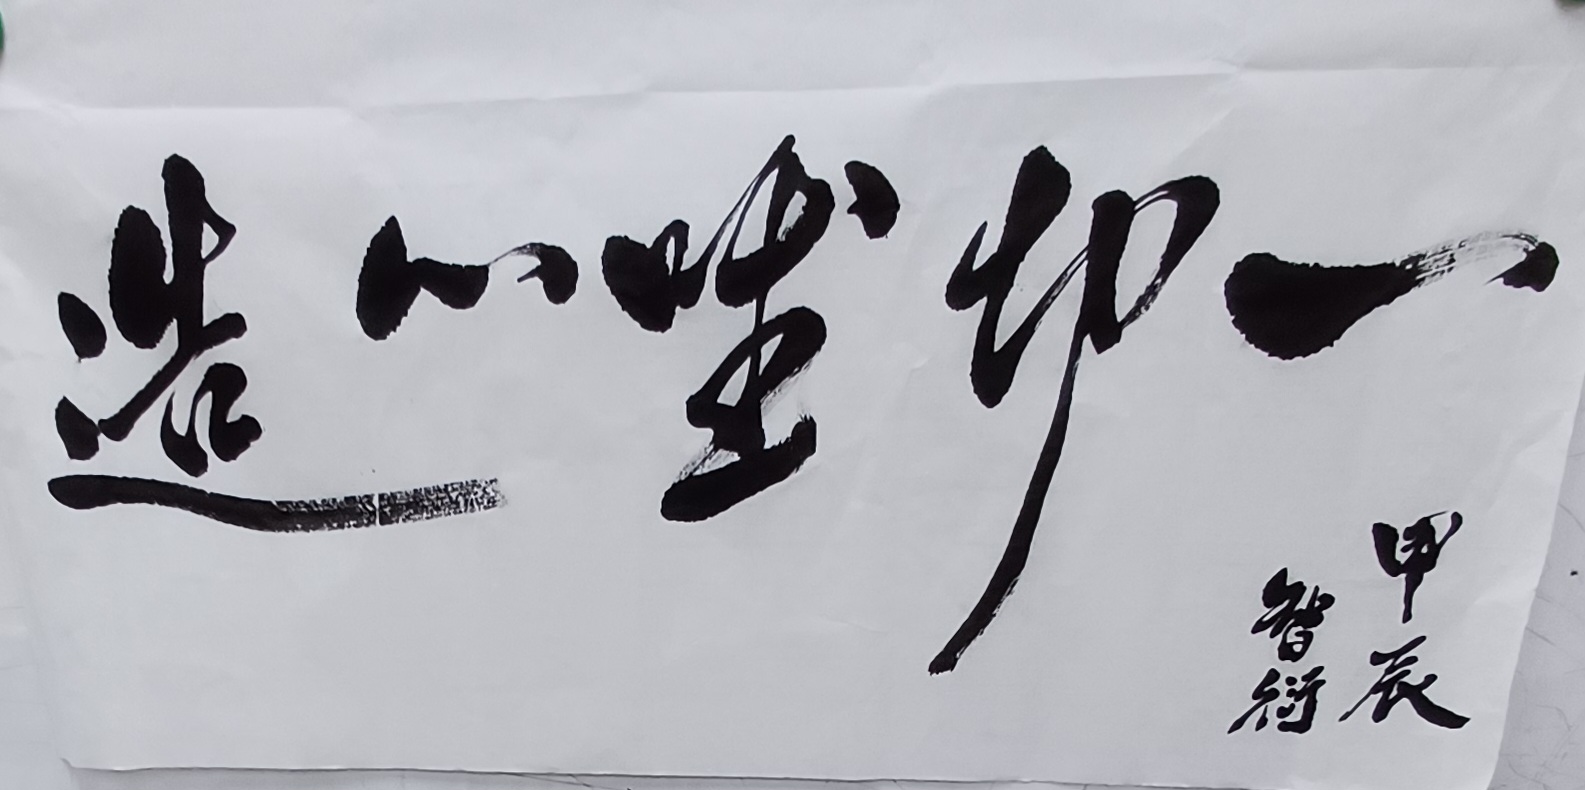 一切唯心造
甲辰
智衍